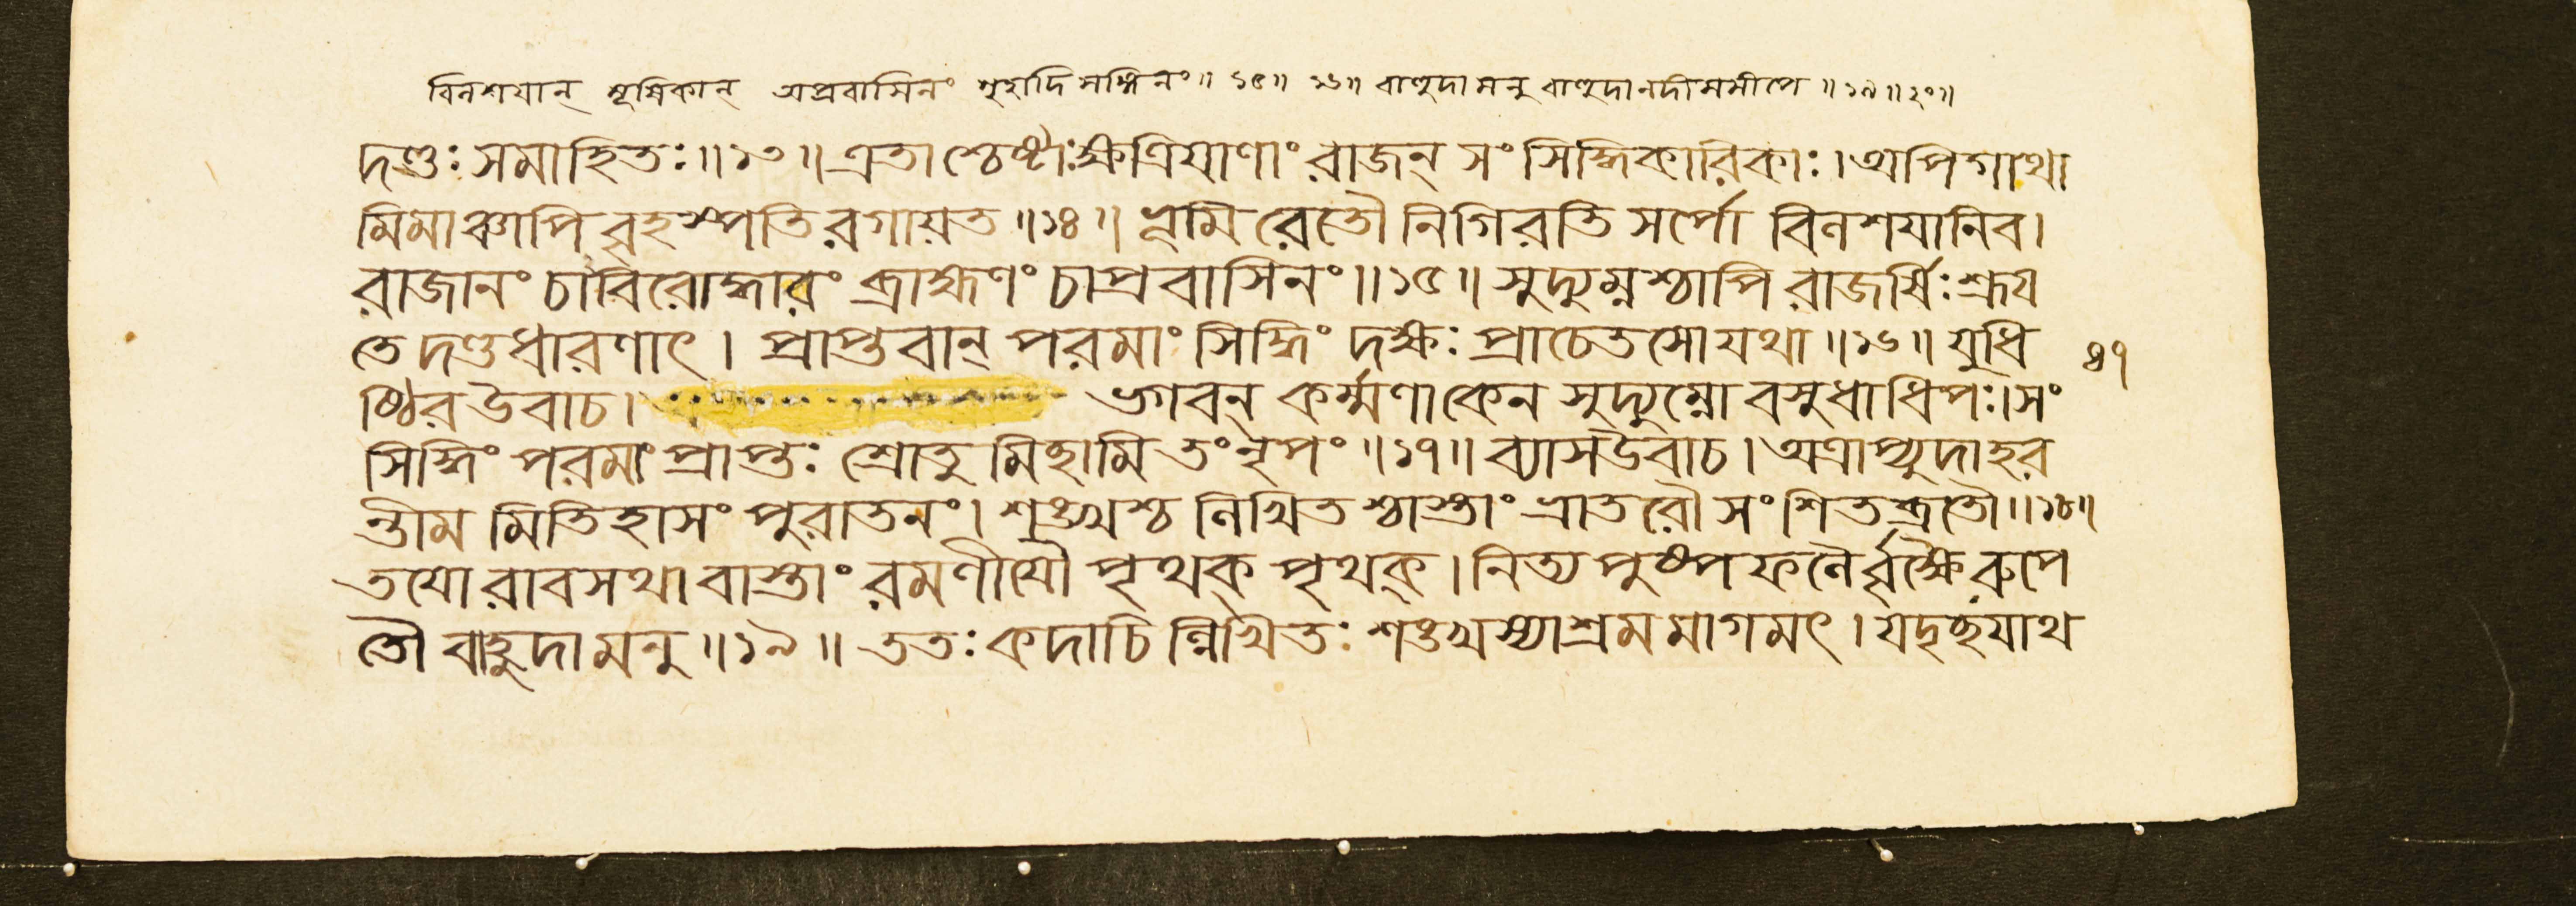 বিনশযান্ মূষিকান্ অপ্রবাসিনং গৃহাদিসঙ্গিনং॥ ১৫॥ ১৬॥ বাহুদামনু বাহুদানদীসমীপে ॥১৯॥২০॥
দণ্ডঃ সমাহিতঃ॥১৩॥ এতাশ্চেষ্টাঃ ক্ষত্রিযাণাং রাজন্ সংসিদ্ধিকারিকাঃ।অপিগাথা
মিমাঞ্চাপি বৃহস্পতিরগায়ত॥১৪॥ ভূমিরেতৌ নিগিরতি সর্পো বিনশযানিব।
রাজানং চাবিরোদ্ধারং ব্রাহ্মণং চাপ্রবাসিনং॥১৫॥ সুদ্যুম্নশ্চাপি রাজর্ষিঃ শ্রূয
তে দণ্ডধারণাৎ। প্রাপ্তবান্ পরমাং সিদ্ধিং দক্ষঃ প্রাচেতসো যথা॥১৬॥ যুধি ৪৭
ষ্ঠির উবাচ। ভগবন্ কর্ম্মণা কেন সুদ্যুম্নো বসুধাধিপঃ।সং
সিদ্ধিং পরমাং প্রাপ্তঃ শ্রোতুমিচ্ছামি তং নৃপং॥১৭॥ ব্যাস উবাচ। অত্রাপ্যুদাহর
ন্তীমমিতিহাসং পুরাতনং। শঙ্খশ্চ লিখিতশ্চাস্তাং ভ্রাতরৌ সংশিতব্রতৌ॥১৮॥
তযোরাবসথাবাস্তাং রমণীযৌ পৃথক্ পৃথক্। নিত্যপুষ্পফলৈর্বৃক্ষৈরুপে
তৌ বাহুদামনু॥১৯॥ ততঃ কদাচিল্লিখিতঃ শঙ্খস্যাশ্রমমাগমৎ। যদৃচ্ছযাথ